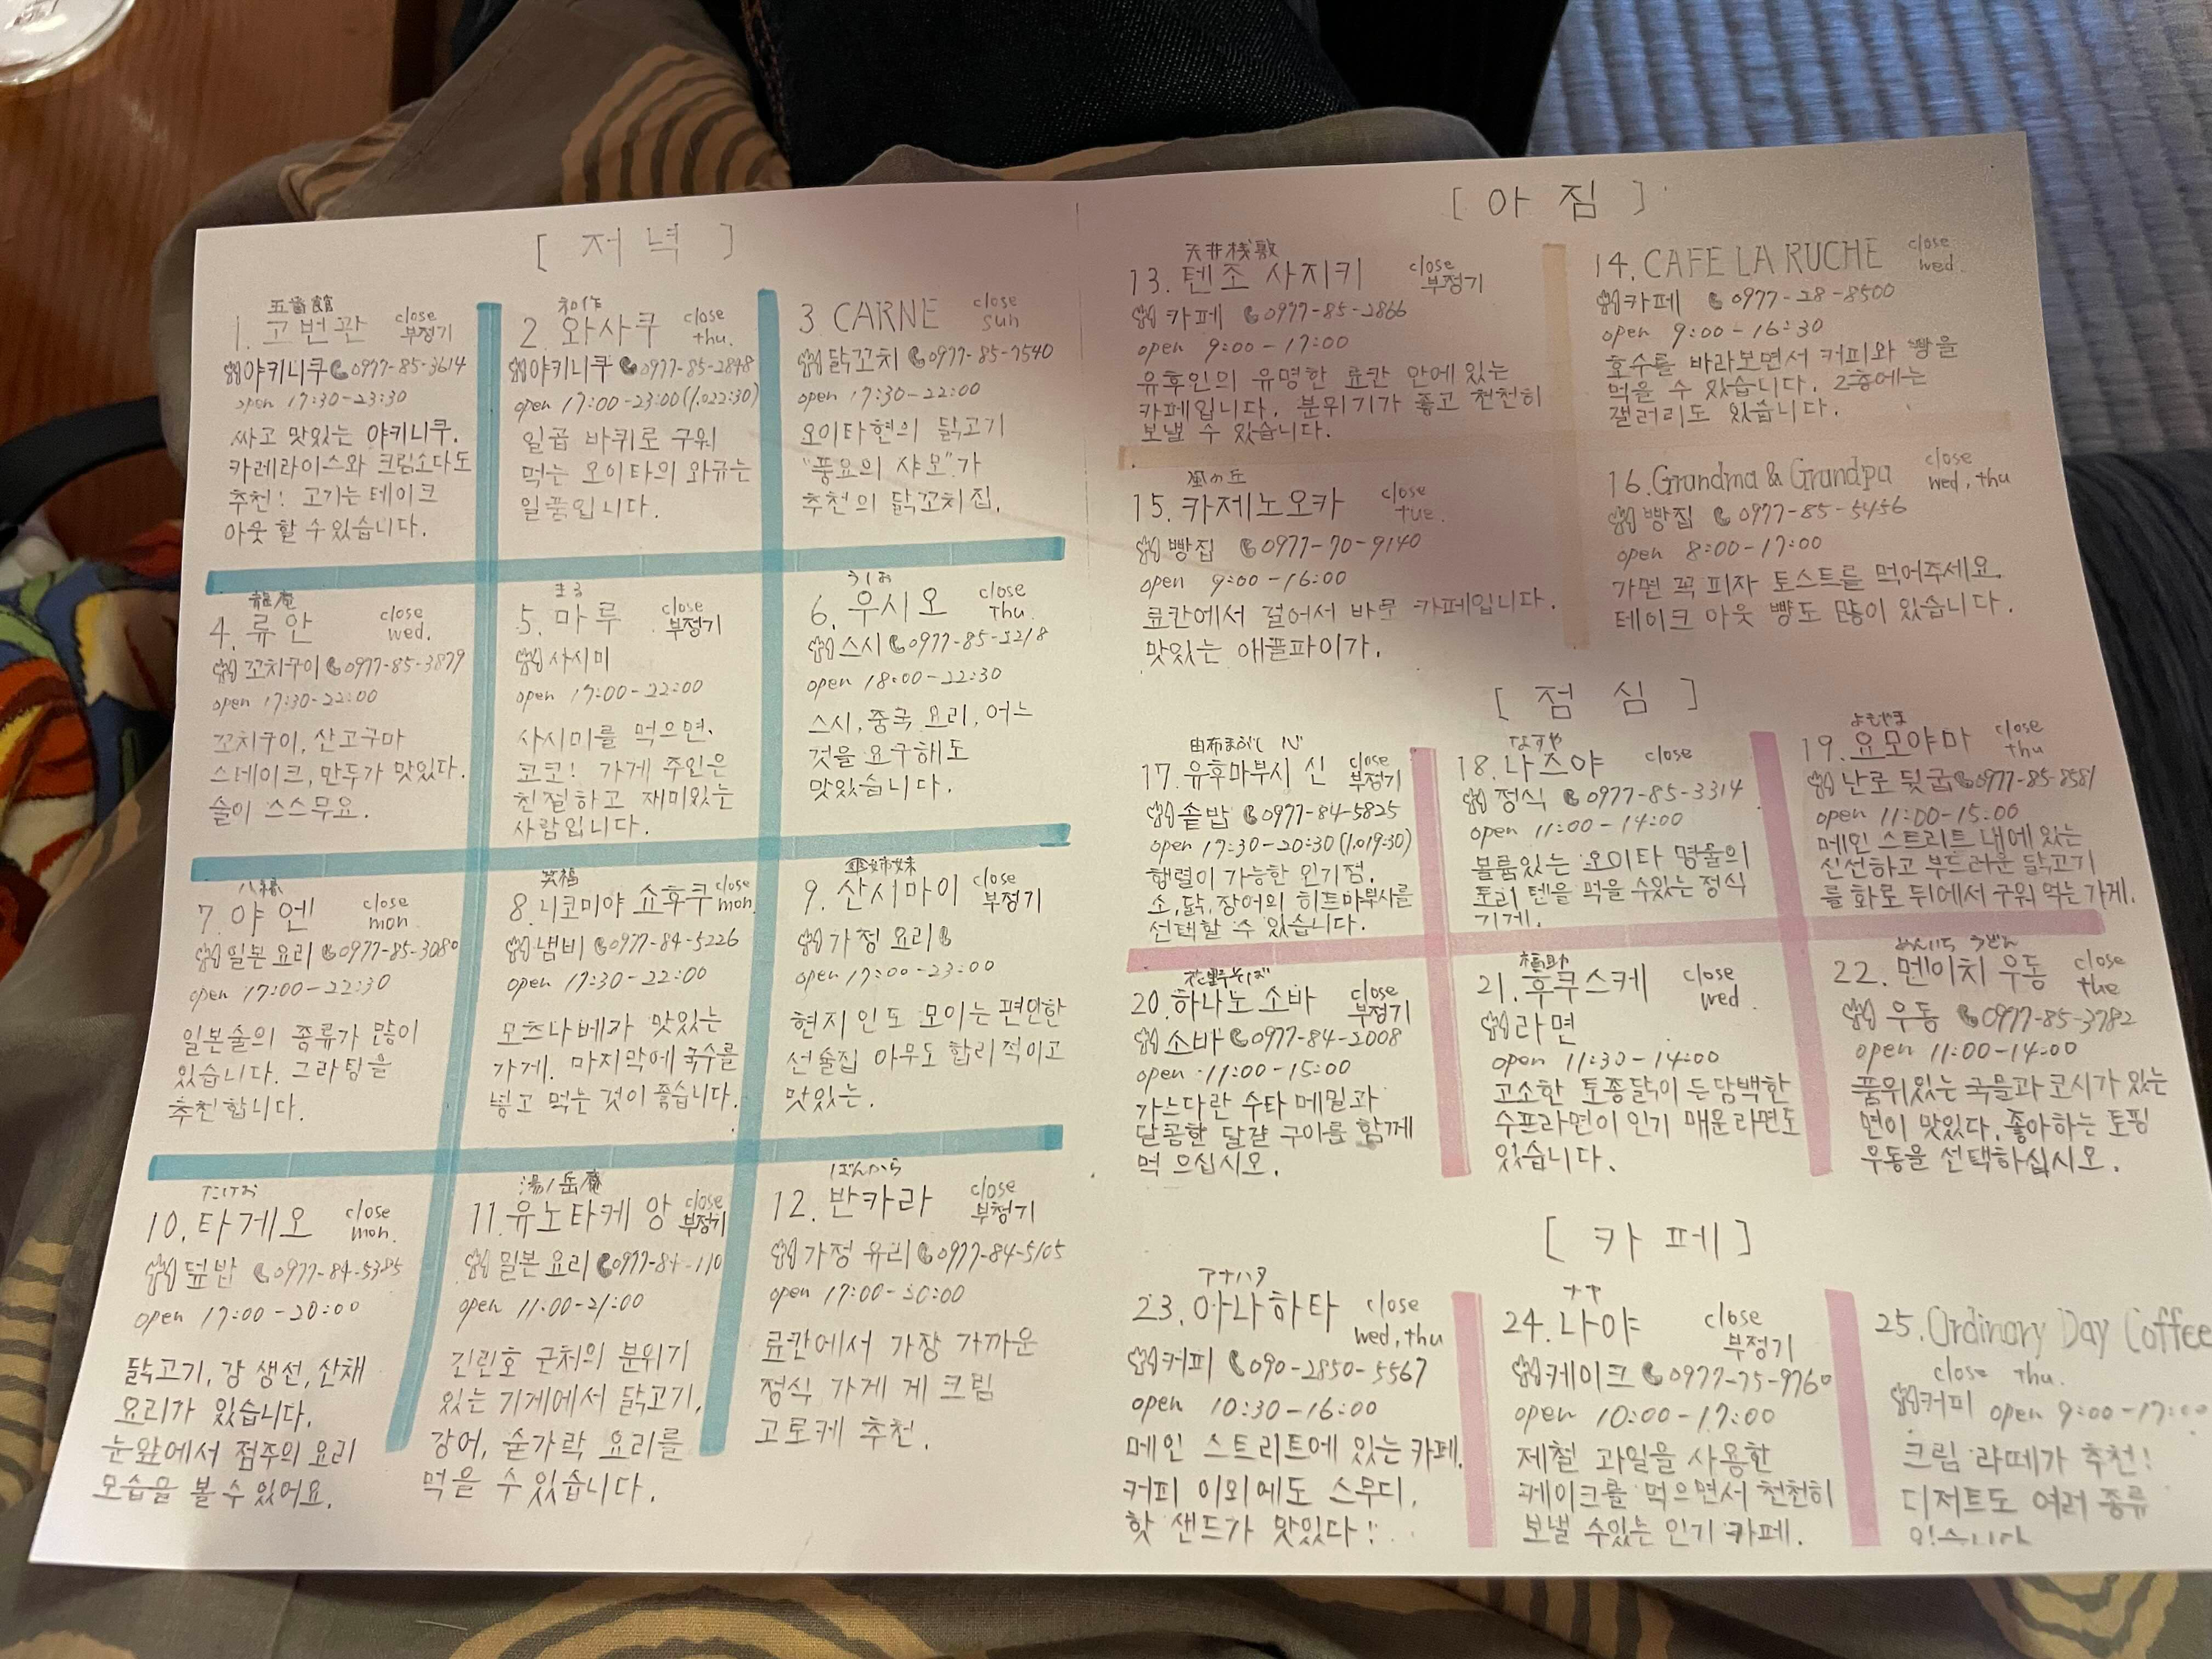 [ 저 녁 ]
五番館
1. 고번관 close 부정기
야키니쿠 0977-85-3614
open 17:30-23:30
싸고 맛있는 야키니쿠.
카레라이스와 크림소다도
추천! 고기는 테이크
아웃 할 수 있습니다.
和作
2. 와사쿠 close thu.
야키니쿠 0977-85-2848
open 17:00-23:00(l.o22:30)
일곱 바퀴로 구워
먹는 오이타의 와규는
일품입니다.
3 CARNE close sun
닭꼬치 0977-85-7540
open 17:30-22:00
오이타현의 닭고기
"풍요의 샤모"가
추천의 닭꼬치집.
龍庵
4. 류안 close wed.
꼬치구이 0977-85-3879
open 17:30-22:00
꼬치구이, 산고구마
스테이크, 만두가 맛있다.
술이 스스무요.
まる
5. 마루 close 부정기
사시미
open 17:00-22:00
사시미를 먹으면.
코코! 가게 주인은
친절하고 재미있는
사람입니다.
うしお
6. 우시오 close thu.
스시 0977-85-3218
open 18:00-22:30
스시, 중국 요리, 어느
것을 요구해도
맛있습니다.
八縁
7. 야엔 close mon
일본요리 0977-85-3080
open 17:00-22:30
일본술의 종류가 많이
있습니다. 그라탕을
추천합니다.
笑福
8. 니코미야 쇼후쿠 close mon.
냄비 0977-84-5226
open 17:30-22:00
모츠나베가 맛있는
가게. 마지막에 국수를
넣고 먹는 것이 좋습니다.
傘姉妹
9. 산시마이 close 부정기
가정 요리
open 17:00-23:00
현지인도 모이는 편안한
선술집 아무도 합리적이고
맛있는.
たけお
10. 타케오 close mon.
덮밥 0977-84-5385
open 17:00-20:00
닭고기, 강 생선, 산채
요리가 있습니다.
눈앞에서 점주의 요리
모습을 볼 수 있어요.
湯ノ岳庵
11. 유노타케 앙 close 부정기
일본 요리
open 11:00-21:00
긴린호 근처의 분위기
있는 기게에서 닭고기,
강어, 숟가락 요리를
먹을 수 있습니다.
ばんから
12. 반카라 close 부정기
가정 유리 0977-84-5105
open 17:00-20:00
료칸에서 가장 가까운
정식 가게 게 크림
고로케 추천.
[ 아 침 ]
天井桟敷
13. 텐조 사지키 close 부정기
카페 0977-85-2866
open 9:00-17:00
유후인의 유명한 료칸 안에 있는
카페입니다. 분위기가 좋고 천천히
보낼 수 있습니다.
14. CAFE LA RUCHE close wed.
카페 0977-28-8500
open 9:00-16:30
호수를 바라보면서 커피와 빵을
먹을 수 있습니다. 2층에는
갤러리도 있습니다.
風の丘
15. 카제노오카 close tue.
빵집 0977-70-9140
open 9:00-16:00
료칸에서 걸어서 바로 카페입니다.
맛있는 애플파이가.
16. Grandma & Grandpa close wed, thu
빵집 0977-85-5456
open 8:00-17:00
가면 꼭 피자 토스트를 먹어주세요.
테이크 아웃 빵도 많이 있습니다.
[ 점 심 ]
由布まぶし 心
17. 유후마부시 신 close 부정기
솥밥 0977-84-5825
open 17:30-20:30(l.o19:30)
행렬이 가능한 인기점.
소, 닭, 장어의 히트마부사를
선택할 수 있습니다.
なすや
18. 나즈야 close
정식 0977-85-3314
open 11:00-14:00
볼륨있는 오이타 명물의
토리 텐을 먹을 수있는 정식
기게.
よもやま
19. 요모야마 close thu
난로 뒷굽 0977-85-8581
open 11:00-15:00
메인 스트리트 내에 있는
신선하고 부드러운 닭고기
를 화로 뒤에서 구워 먹는 가게.
花野そば
20. 하나노 소바 close 부정기
소바 0977-84-2008
open 11:00-15:00
가느다란 수타 메밀과
달콤한 달걀 구이를 함께
먹 으십시오.
福助
21. 후쿠스케 close wed.
라면
open 11:30-14:00
고소한 토종닭이 든 담백한
수프라면이 인기 매운 라면도
있습니다.
めんいち うどん
22. 멘이치 우동 close the
우동 0977-85-3782
open 11:00-14:00
품위있는 국물과 코시가 있는
면이 맛있다. 좋아하는 토핑
우동을 선택하십시오.
[ 카 페 ]
アナハタ
23. 아나하타 close wed, thu
커피 090-2850-5567
open 10:30-16:00
메인 스트리트에 있는 카페.
커피 이외에도 스무디,
핫 샌드가 맛있다!
ナヤ
24. 나야 close 부정기
케이크 0977-75-9760
open 10:00-17:00
제철 과일을 사용한
케이크를 먹으면서 천천히
보낼 수있는 인기 카페.
25. Ordinary Day Coffee
close thu.
커피 open 9:00-17:00
크림 라떼가 추천!
디저트도 여러 종류